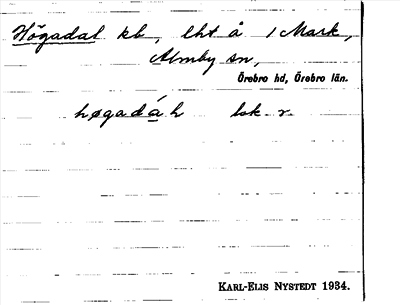 Högadal kb, lht å 1 Mark,
Almby sn,
Örebro hd, Örebro län.
høgadáh lok. r.
KARL-ELIS NYSTEDT 1934.